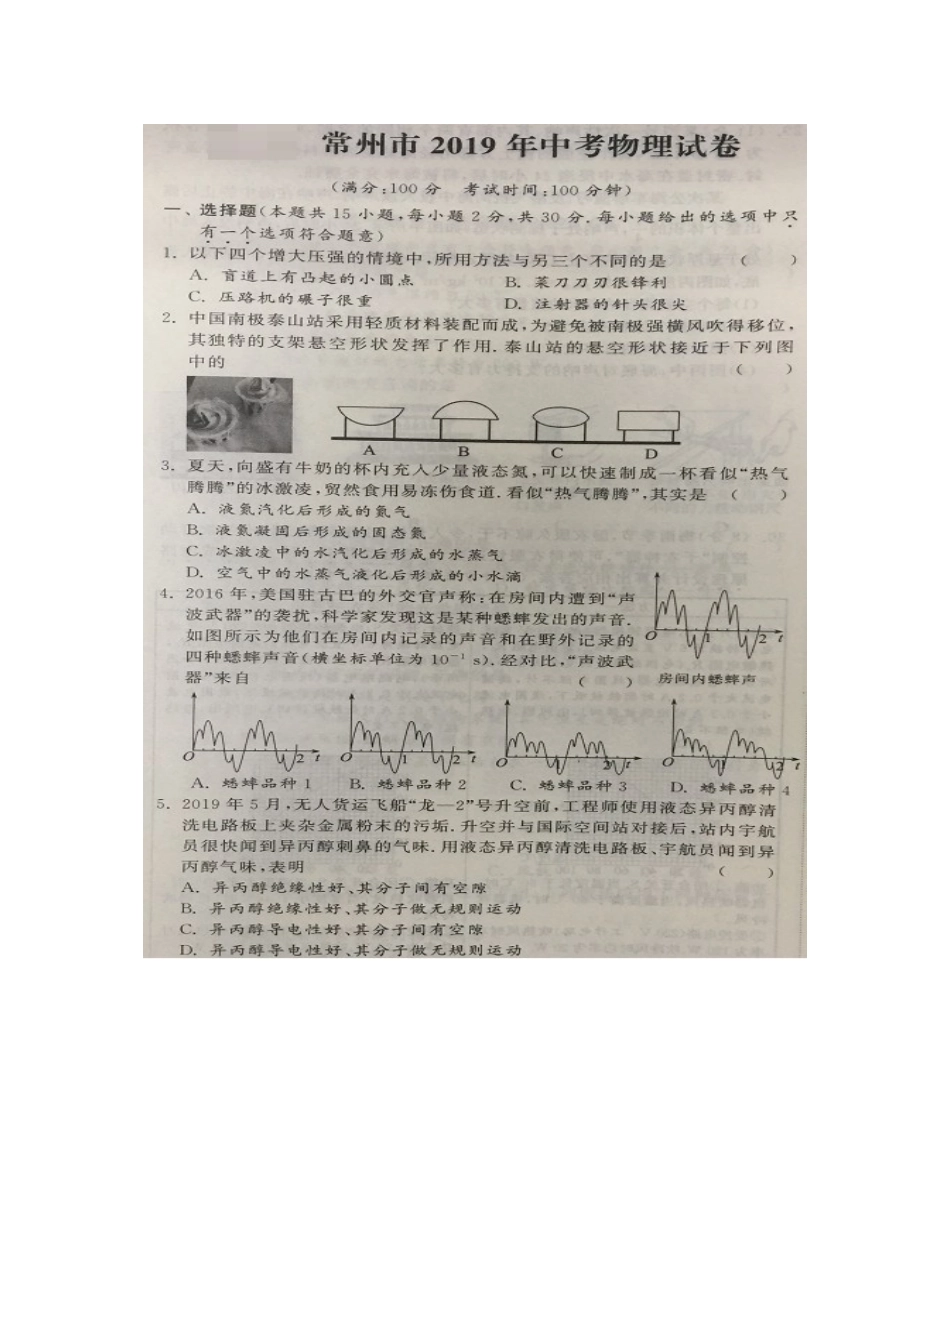 常州市 2019 年中考物理试卷
(满分:100 分 考试时间:100 分钟)
一、选择题(本题共 15 小题,每小题 2 分,共 30 分.每小题给出的选项中只
有一个选项符合题意)
1. 以下四个增大压强的情境中,所用方法与另三个不同的是 ( )
A. 盲道上有凸起的小圆点 B. 菜刀刀刃很锋利
C. 压路机的碾子很重 D. 注射器的针头很尖
2. 中国南极泰山站采用轻质材料装配而成,为避免被南极强横风吹得移位,
其独特的支架悬空形状发挥了作用.泰山站的悬空形状接近于下列图
中的 ( )
A B C D
3. 夏天,向盛有牛奶的杯内充入少量液态氮,可以快速制成一杯看似“热气
腾腾”的冰激凌,贸然食用易冻伤食道.看似“热气腾腾”,其实是 ( )
A. 液氮汽化后形成的氮气
B. 液氮凝固后形成的固态氮
C. 冰激凌中的水汽化后形成的水蒸气
D. 空气中的水蒸气液化后形成的小水滴
4. 2016 年,美国驻古巴的外交官声称:在房间内遭到“声
波武器”的袭扰,科学家发现这是某种蟋蟀发出的声音.
如图所示为他们在房间内记录的声音和在野外记录的
四种蟋蟀声音(横坐标单位为 10⁻¹ s).经对比,“声波武
器”来自 ( )
O 1 2 t
房间内蟋蟀声
O 1 2 t O 1 2 t O 1 2 t O 1 2 t
A. 蟋蟀品种 1 B. 蟋蟀品种 2 C. 蟋蟀品种 3 D. 蟋蟀品种 4
5. 2019 年 5 月,无人货运飞船“龙—2”号升空前,工程师使用液态异丙醇清
洗电路板上夹杂金属粉末的污垢.升空并与国际空间站对接后,站内宇航
员很快闻到异丙醇刺鼻的气味.用液态异丙醇清洗电路板、宇航员闻到异
丙醇气味,表明 ( )
A. 异丙醇绝缘性好、其分子间有空隙
B. 异丙醇绝缘性好、其分子做无规则运动
C. 异丙醇导电性好、其分子间有空隙
D. 异丙醇导电性好、其分子做无规则运动